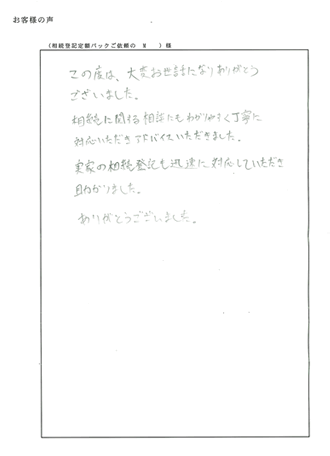 お客様の声
（相続登記定額パックご依頼の　M　）様
この度は、大変お世話になりありがとう
ございました。
相続に関する相談にもわかりやすく丁寧に
対応いただきアドバイスいただきました。
実家の相続登記も迅速に対応していただき
助かりました。
ありがとうございました。